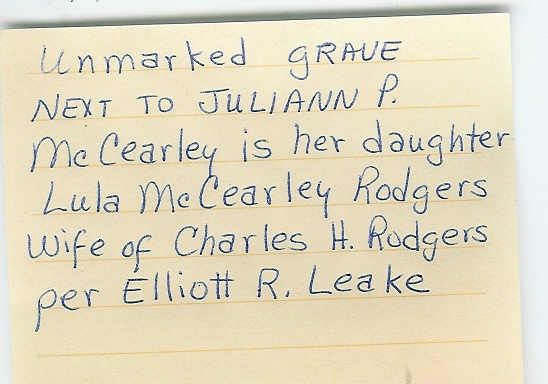 Unmarked GRAVE
NEXT TO JULIANN P.
McCearley is her daughter
Lula McCearley Rodgers
wife of Charles H. Rodgers
per Elliott R. Leake